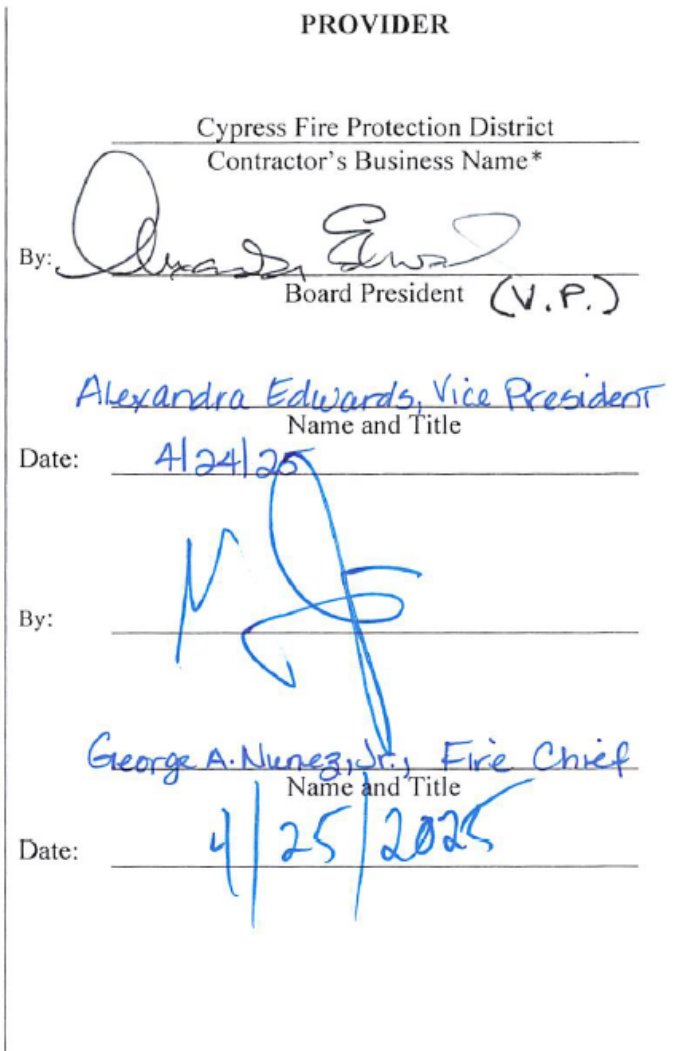 PROVIDER
Cypress Fire Protection District
Contractor's Business Name*
By: Alexandra Edwards
Board President (V.P.)
Alexandra Edwards, Vice President
Name and Title
Date: 4/24/25
By:
George A. Nunez, Jr., Fire Chief
Name and Title
Date: 4/25/2025